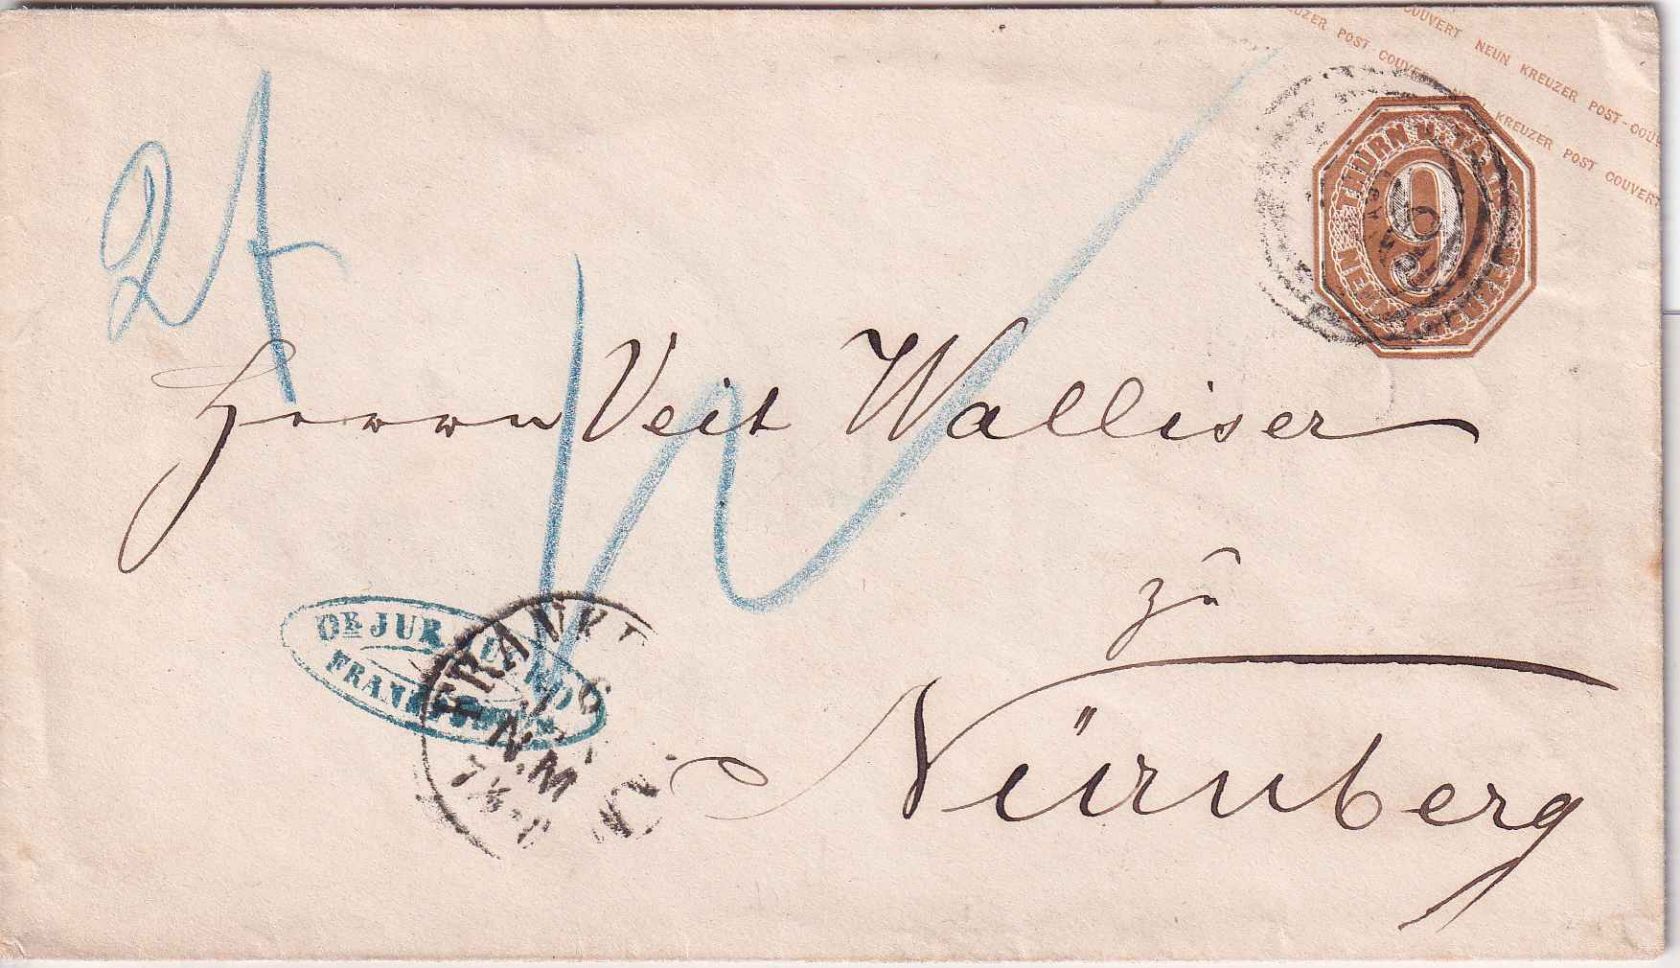 UZER POST COUVERT NEUN KREUZER POST COUVERT
COUVERT NEUN KREUZER POST-COUV
THURN U. TAXIS
9
NEUN KREUZER
Herrn Veit Walliser
zu
Nürnberg
Dr JUR.
FRANKFURT
FRANKF
N.M